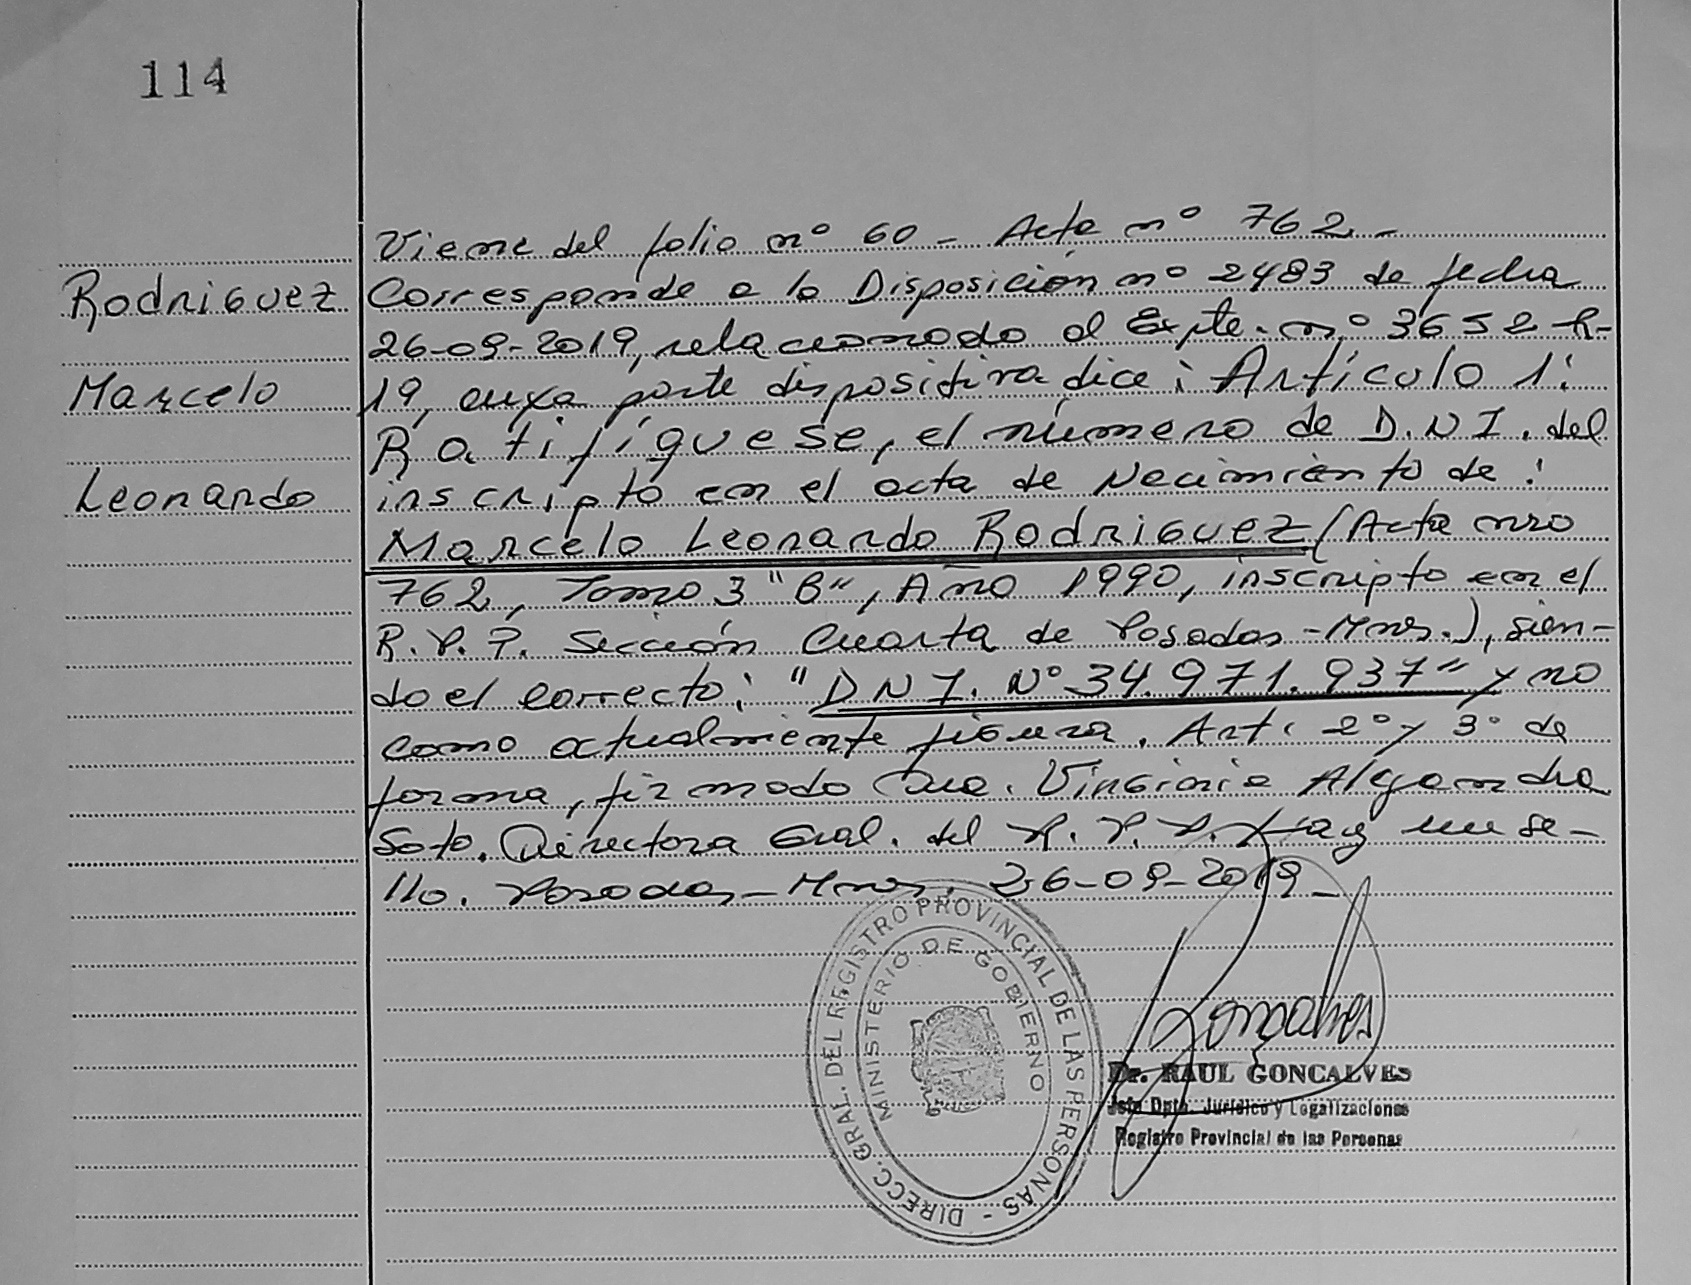 114
Viene del folio nº 60 - Acta nº 762 -
Rodriguez
Corresponde a la Disposición nº 2483 de fecha
26-09-2019, relacionado al Expte. nº 3652-R-
Marcelo
19, cuya parte dispositiva dice: Artículo 1:
Ratifíquese, el número de D.N.I. del
Leonardo
inscripto en el acta de Nacimiento de:
Marcelo Leonardo Rodriguez (Acta nro
762, Tomo 3 "B", Año 1990, inscripto en el
R.P.P. Sección Cuarta de Posadas - Mnes.), sien-
do el correcto: "DNI. Nº 34.971.937" y no
como actualmente figura. Art: 2º y 3º de
forma, firmado Vinginia Alejandra
Soto. Directora Gral. del R.P.P. Hay un se-
llo. Posadas - Mnes. 26-09-2019 -
DIRECC. GRAL. DEL REGISTRO PROVINCIAL DE LAS PERSONAS -
MINISTERIO DE GOBIERNO
Goncalves
Dr. RAUL GONCALVES
Jefe Dpto. Jurídico y Legalizaciones
Registro Provincial de las Personas